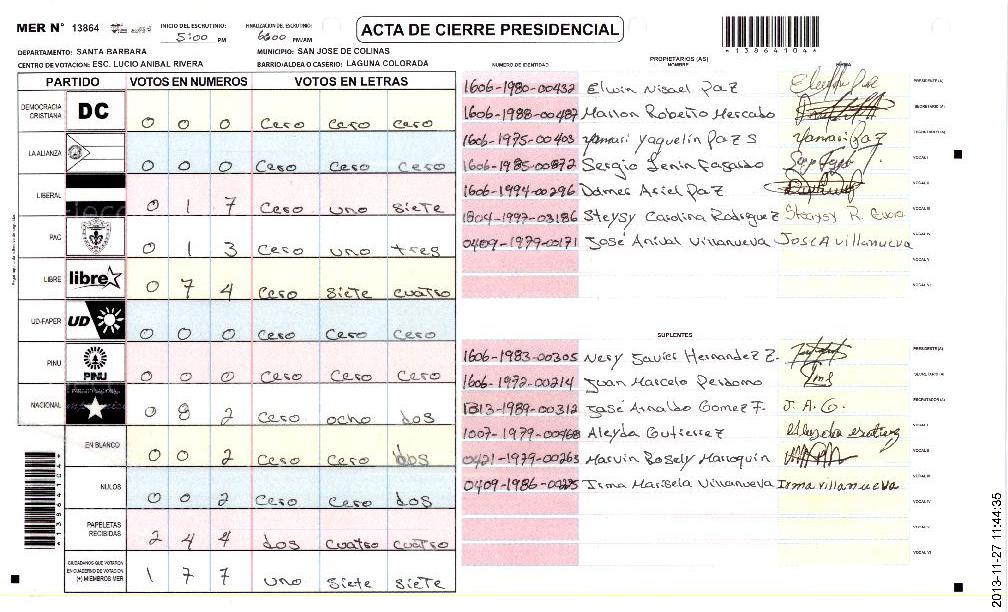 MER N° 13864
INICIO DEL ESCRUTINIO: 5:00 PM
FINALIZACION DEL ESCRUTINIO: 6:00 PM/AM
ACTA DE CIERRE PRESIDENCIAL
*13864104*
DEPARTAMENTO: SANTA BARBARA
MUNICIPIO: SAN JOSE DE COLINAS
CENTRO DE VOTACION: ESC. LUCIO ANIBAL RIVERA
BARRIO/ALDEA O CASERIO: LAGUNA COLORADA
PARTIDO VOTOS EN NUMEROS VOTOS EN LETRAS
DEMOCRACIA CRISTIANA DC 0 0 0 Cero Cero Cero
LA ALIANZA 0 0 0 Cero Cero Cero
LIBERAL 0 1 7 Cero uno siete
PAC 0 1 3 Cero uno tres
LIBRE libre 0 7 4 Cero siete cuatro
UD-FAPER UD 0 0 0 Cero Cero Cero
PINU PINU 0 0 0 Cero Cero Cero
NACIONAL 0 8 2 Cero ocho dos
EN BLANCO 0 0 2 Cero Cero dos
NULOS 0 0 2 Cero Cero dos
PAPELETAS RECIBIDAS 2 4 4 dos cuatro cuatro
CIUDADANOS QUE VOTARON EN CUADERNO DE VOTACION (+) MIEMBROS MER 1 7 7 uno siete siete
PROPIETARIOS (AS)
NUMERO DE IDENTIDAD NOMBRE FIRMA
1606-1980-00432 Elvin Nisael Paz PRESIDENTE(A)
1606-1988-00487 Marlon Roberto Mercado SECRETARIO(A)
1606-1975-00403 Yamari Yaquelin Paz S Yamari Paz ESCRUTADOR(A)
1606-1985-00872 Sergio Lenin Fajardo VOCAL I
1606-1994-00296 Domer Ariel Paz VOCAL II
1804-1997-03186 Steysy Carolina Rodriguez Steysy R. VOCAL III
0409-1979-00171 José Anibal Villanueva José A villanueva VOCAL IV
VOCAL V
VOCAL VI
SUPLENTES
1606-1983-00305 Nery Javier Hernandez Z. PRESIDENTE(A)
1606-1972-00214 Juan Marcelo Perdomo SECRETARIO(A)
1313-1989-00312 José Arnaldo Gomez F. J. A. G. ESCRUTADOR(A)
1007-1979-00468 Aleyda Gutierrez VOCAL I
0421-1979-00263 Marvin Rosely Marroquin VOCAL II
0409-1986-00225 Irma Marisela Villanueva Irma villanueva VOCAL III
VOCAL IV
VOCAL V
VOCAL VI
*13864104*
2013-11-27 11:44:35